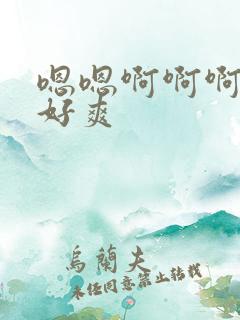 嗯嗯啊啊啊
好爽
乌蘭夫
未经同意禁止转载